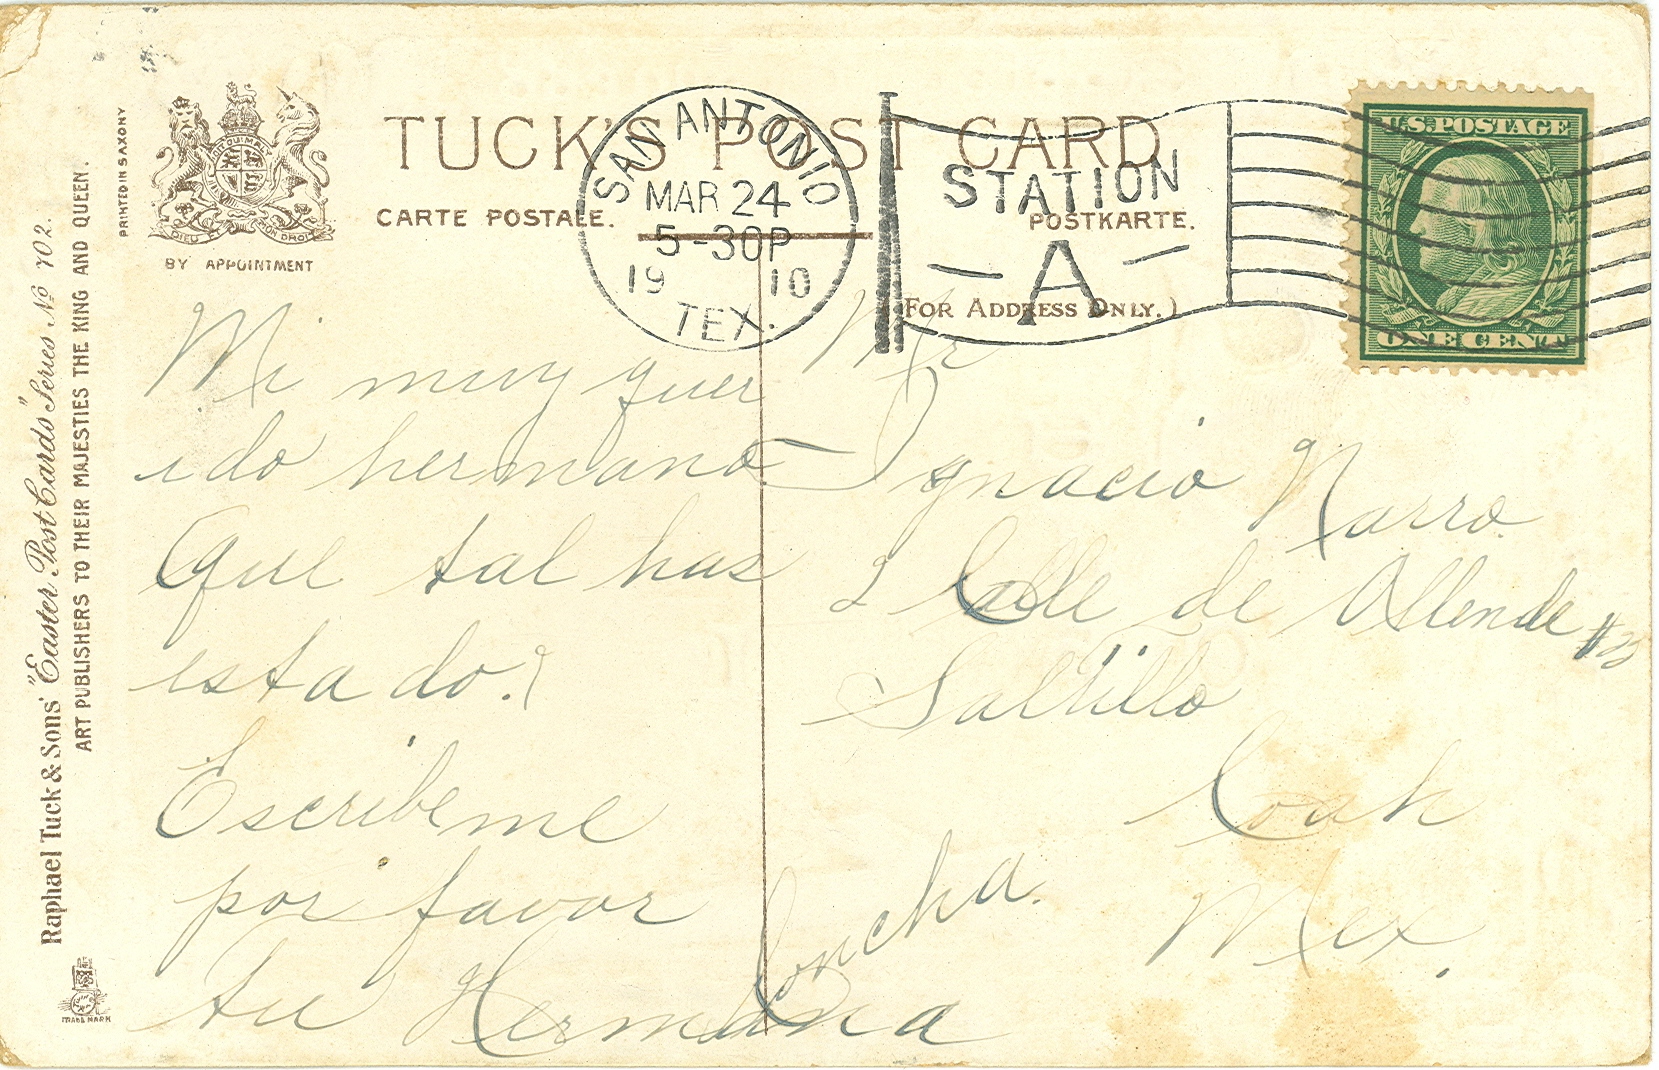 Raphael Tuck & Sons' "Easter Post Cards" Series No 702.
ART PUBLISHERS TO THEIR MAJESTIES THE KING AND QUEEN.
PRINTED IN SAXONY
DIEU ET MON DROIT
BY APPOINTMENT
TRADE MARK
TUCK'S POST CARD
CARTE POSTALE.
POSTKARTE.
(FOR ADDRESS ONLY.)
SAN ANTONIO
MAR 24
5-30P
1910
TEX.
STATION
- A -
U.S. POSTAGE
ONE CENT
Mi muy quer
ido hermano
Que tal has
estado.?
Escribeme
por favor
tu Hermana
Concha.
Mr
Ignacio Narro.
2 Calle de Allende #23
Saltillo
Coah
Mex.